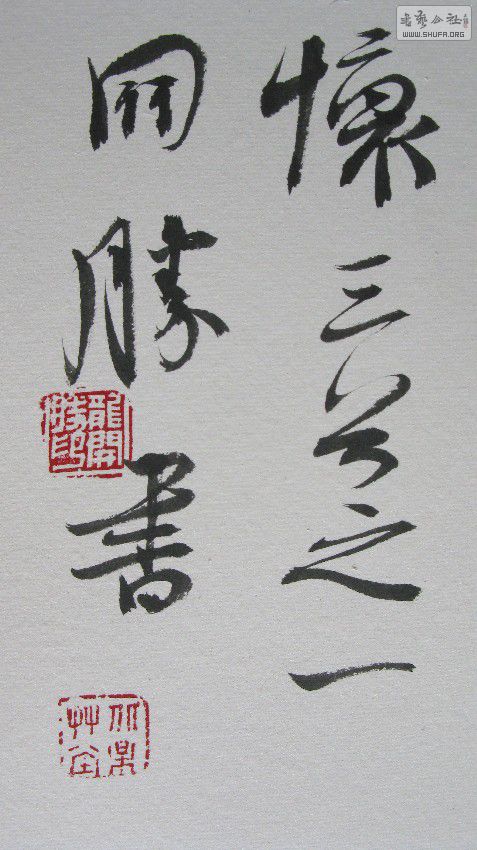 懷三公之一
開勝書
龍開勝印
書藝公社
WWW.SHUFA.ORG